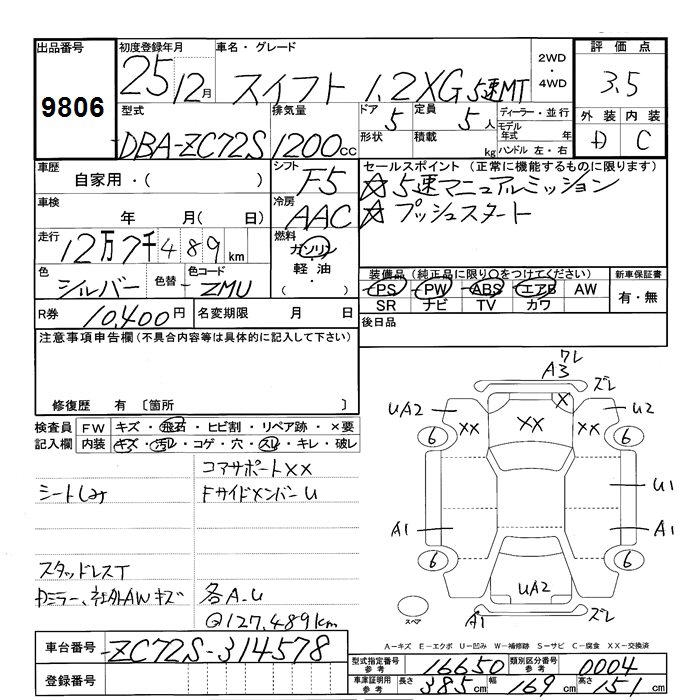 出品番号 初度登録年月 車名・グレード 評価点
9806 25 12月 スイフト 1.2XG 5速MT 2WD ・ 4WD 3.5
型式 排気量 ドア 定員 ディーラー・並行 外装 内装
DBA-ZC72S 1200cc 5 5人 モデル年式 年 D C
形状 積載 kg ハンドル 左・右
車歴 シフト セールスポイント (正常に機能するものに限ります)
自家用・( ) F5 ☆5速マニュアルミッション
車検 冷房 ☆プッシュスタート
年 月( 日) AAC
走行 燃料
12万7千489km ガソリン
軽油
( ・ )
色 色替 色コード 装備品(純正品に限り○をつけてください) 新車保証書
シルバー ZMU PS PW ABS エアB AW 有・無
SR ナビ TV カワ
R券 10,400円 名変期限 月 日 後日品
注意事項申告欄(不具合内容等は具体的に記入して下さい)
修復歴 有 〔箇所 〕
検査員 FW キズ・飛石・ヒビ割・リペア跡・×要
記入欄 内装 キズ・汚レ・コゲ・穴・スレ・キレ・破レ
コアサポートXX
シートしみ FサイドメンバーU
スタッドレスT
カミラー、社外AWキズ 各A.U
@127,489km
ワレ
A3 ズレ
UA2 XX XX X XX U2
6 6
U1
A1 A1
6 6
UA2
スペア A1 ズレ
A-キズ E-エクボ U-凹み W-補修跡 S-サビ C-腐食 XX-交換済
車台番号 ZC72S-314578
登録番号
型式指定番号参考 16650 類別区分番号参考 0004
車庫証明用参考 長さ 385cm 幅 169cm 高さ 151cm